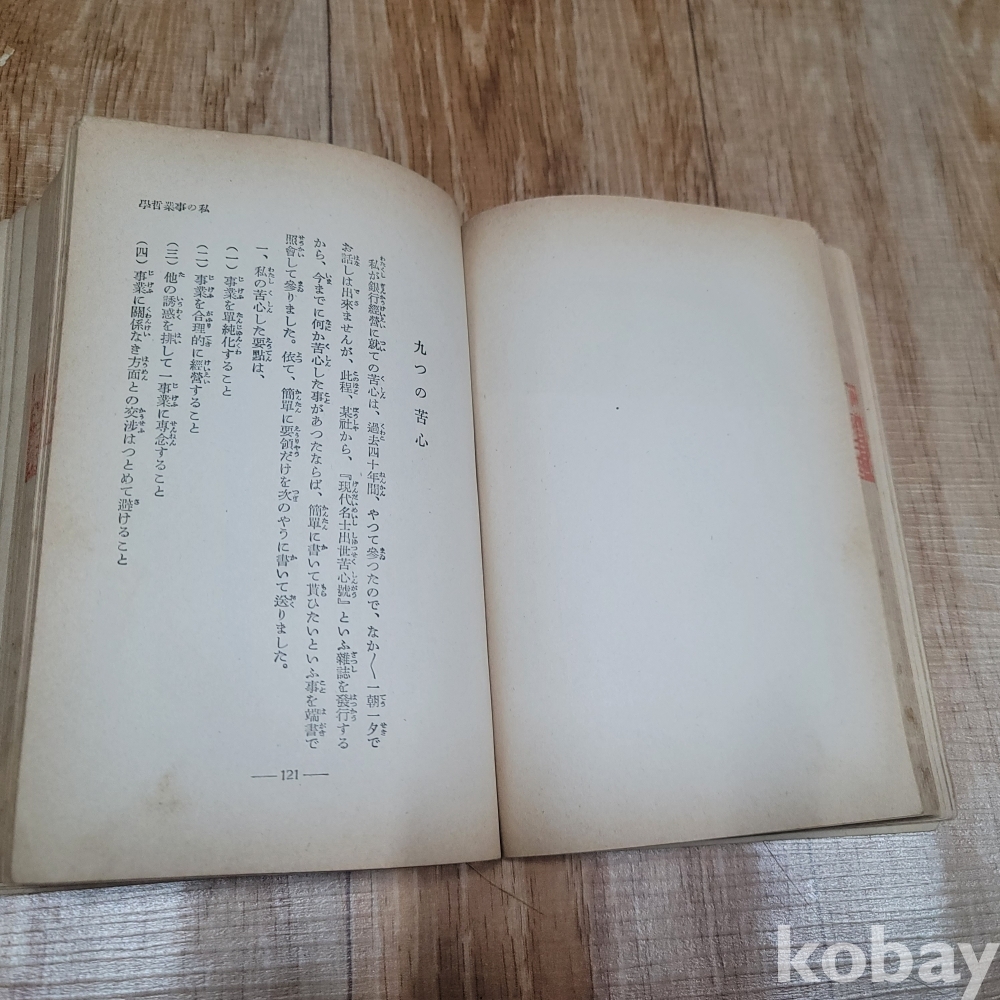 私の事業哲學
九つの苦心
私が銀行經營に就ての苦心は、過去四十年間、やつて參つたので、なか〱一朝一夕で
お話しは出來ませんが、此程、某社から、『現代名士出世苦心號』といふ雜誌を發行する
から、今までに何か苦心した事があつたならば、簡單に書いて貰ひたいといふ事を端書で
照會して參りました。依て、簡單に要領だけを次のやうに書いて送りました。
一、私の苦心した要點は、
(一) 事業を單純化すること
(二) 事業を合理的に經營すること
(三) 他の誘惑を排して一事業に專念すること
(四) 事業に關係なき方面との交渉はつとめて避けること
— 121 —
kobay